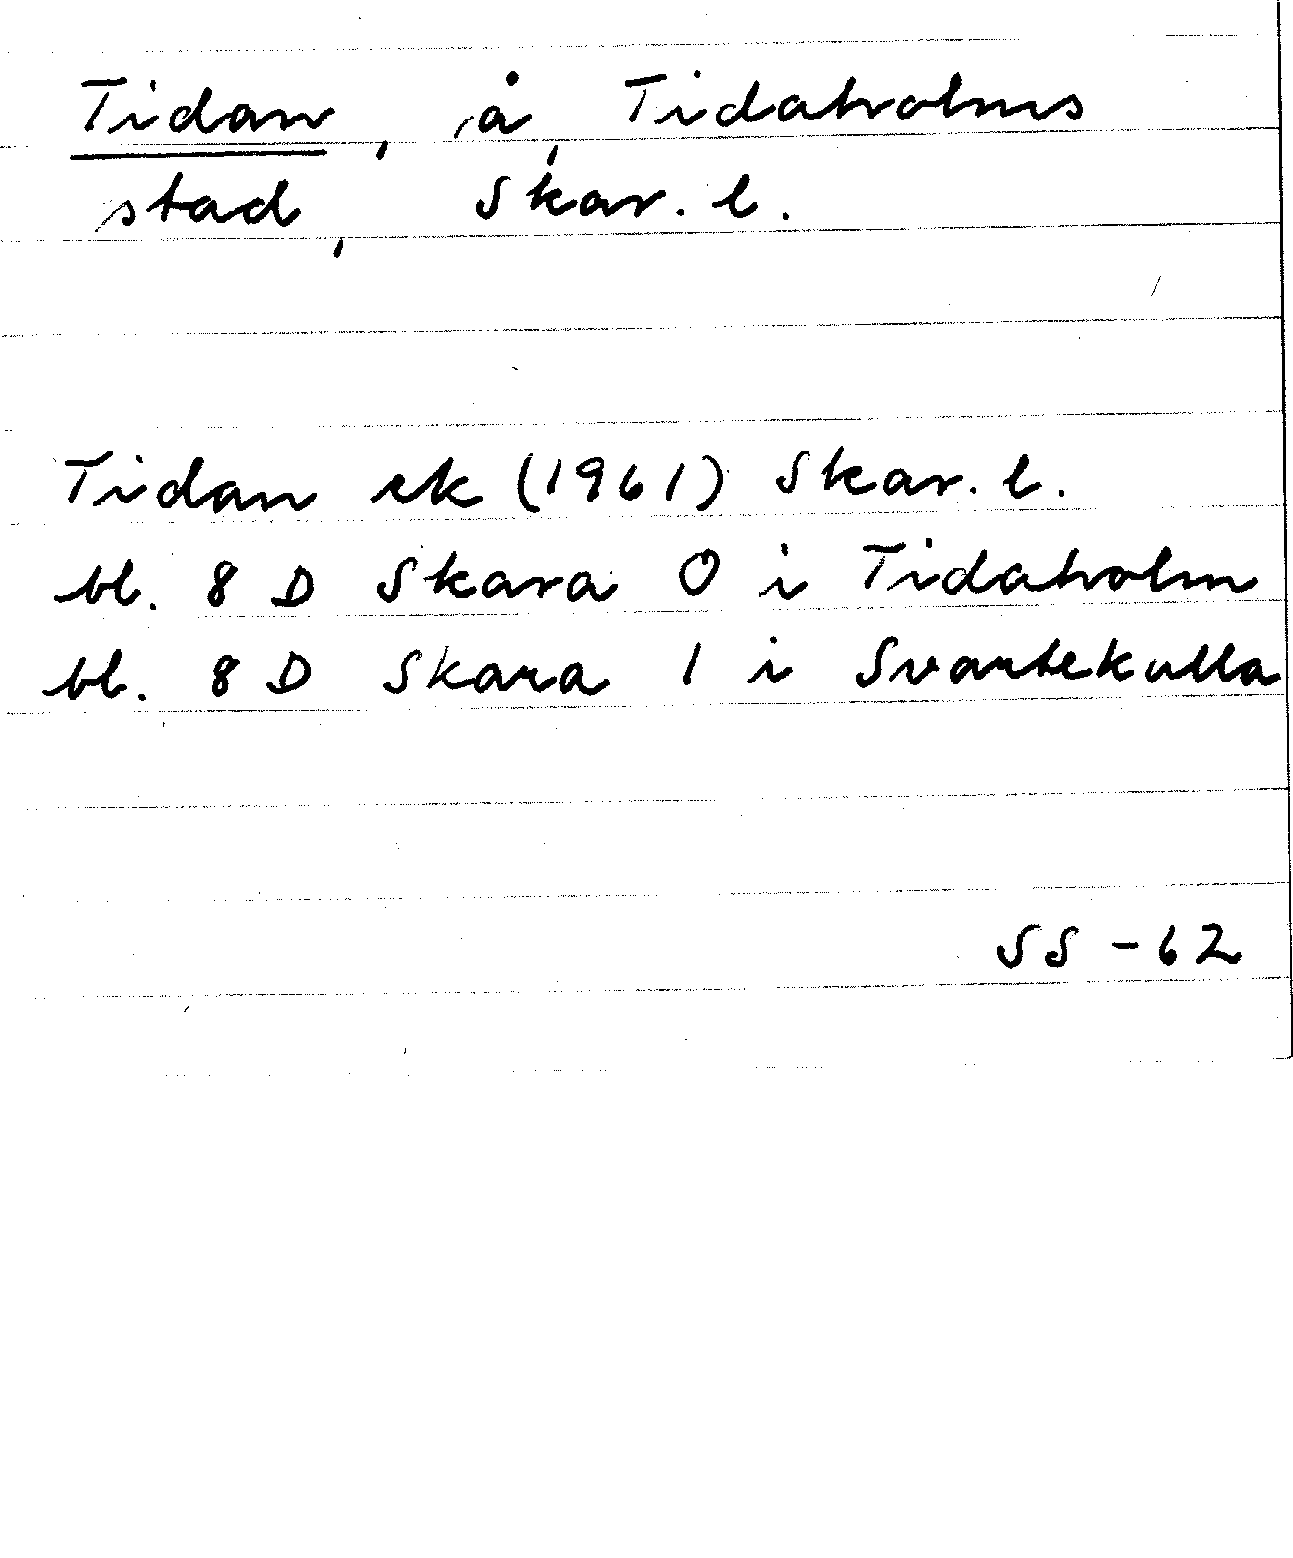 Tidan, å, Tidaholms
stad, Skar. l.
Tidan ek (1961) Skar. l.
bl. 8 D Skara 0 i Tidaholm
bl. 8 D Skara 1 i Svartekulla
SS - 62